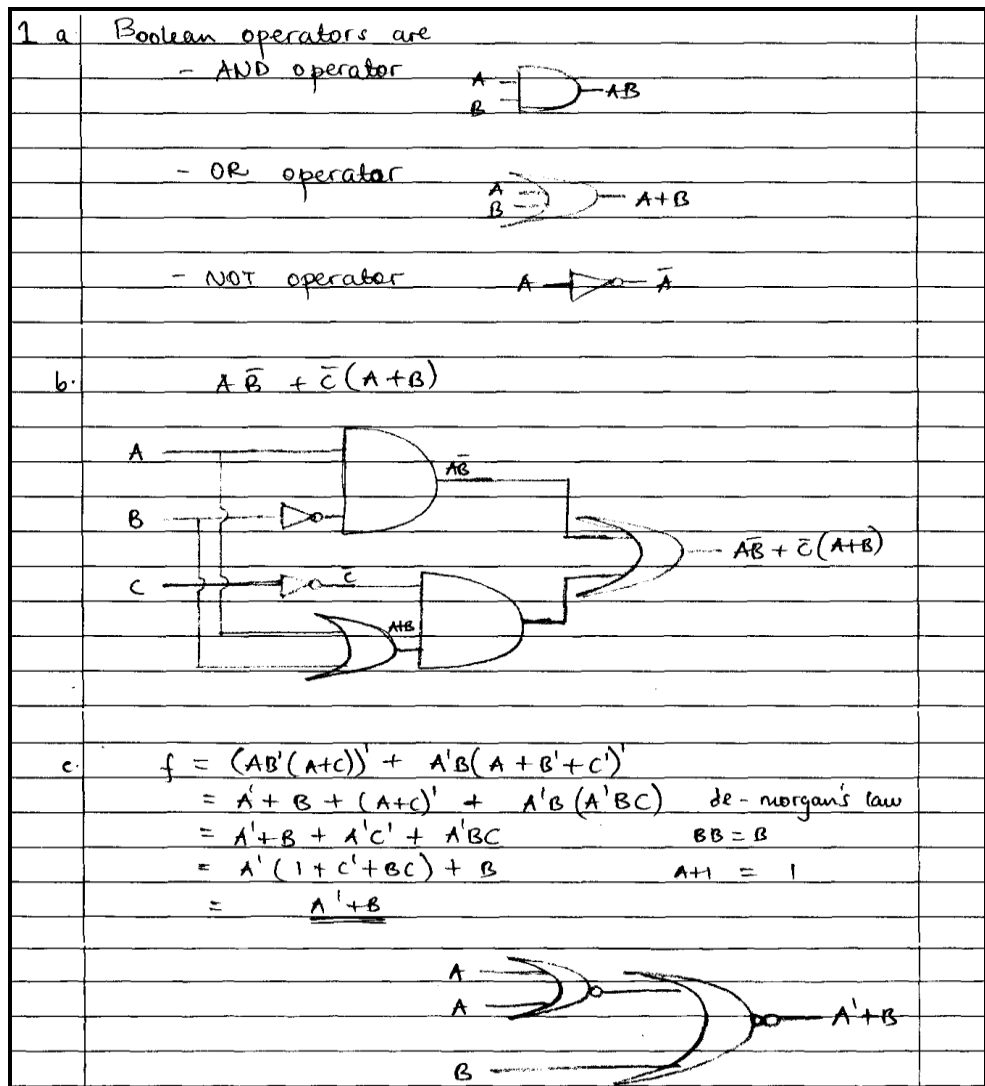 1 a Boolean operators are
- AND operator
A
B
AB
- OR operator
A
B
A+B
- NOT operator
A
Ā
b. A B̄ + C̄ (A+B)
A
B
C
AB̄
C̄
A+B
AB̄ + C̄ (A+B)
c. f = (AB'(A+C))' + A'B(A + B' + C')'
= A' + B + (A+C)' + A'B (A'BC) de-morgan's law
= A'+B + A'C' + A'BC BB = B
= A' (1 + C' + BC) + B A+1 = 1
= A'+B
A
A
B
A'+B